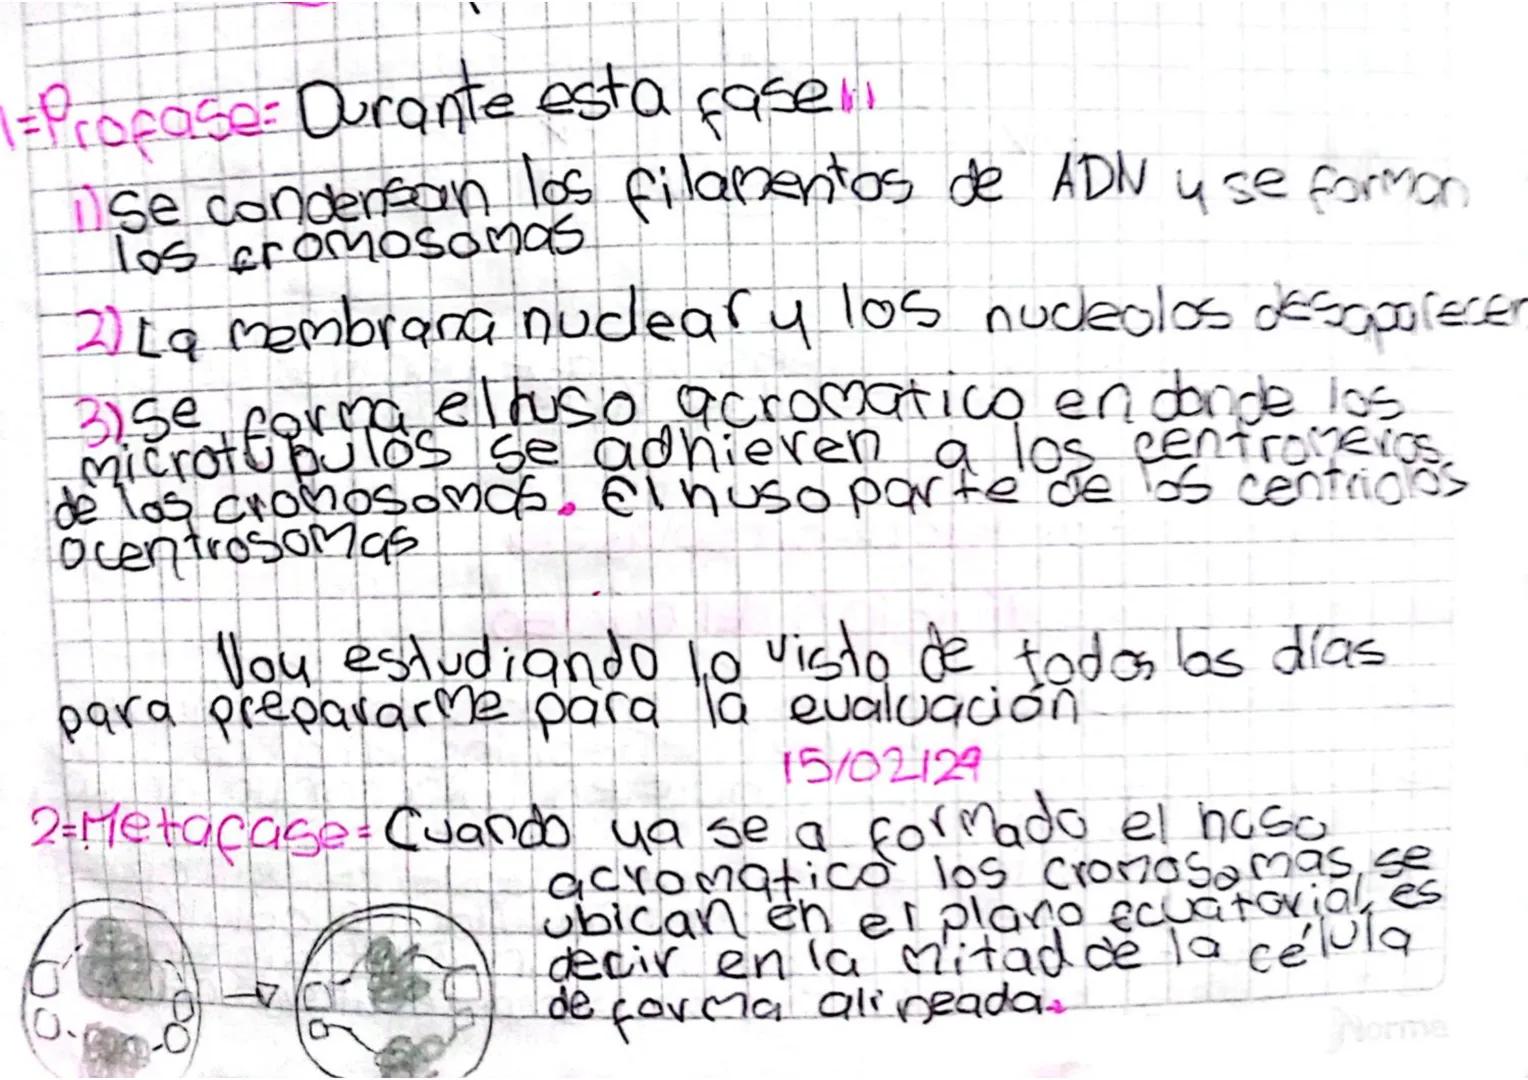 1=Profase= Durante esta fase!!
1) Se condensan los filamentos de ADN y se forman
los cromosomas
2) La membrana nuclear y los nucleolos desaparecen
3) Se forma el huso acromatico en donde los
microtúbulos se adhieren a los centromeros
de los cromosomas. El huso parte de los centriolos
o centrosomas
Voy estudiando lo visto de todos los días
para prepararme para la evaluación
15/02/29
2=Metafase= Cuando ya se a formado el huso
acromatico los cromosomas, se
ubican en el plano ecuatorial, es
decir en la mitad de la célula
de forma alineada.
Norma